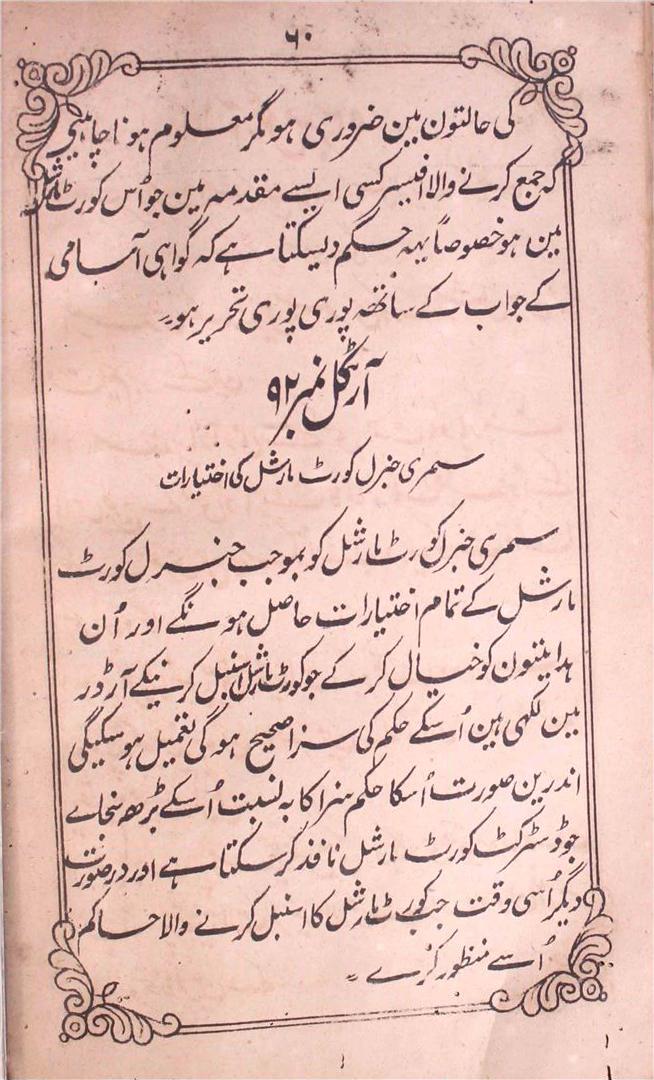 ۶۰
کی حالتون مین ضروری ہو مگر معلوم ہونا چاہیی
کہ جمع کرنے والا افیسر کسی ایسے مقدمہ مین جو اُس کورٹ مارشل
مین ہو خصوصاً یہہ حکم دیسکتا ہے کہ گواہی آسامی
کے جواب کے ساتھہ پوری پوری تحریر ہو۔
آرٹکل نمبر ۹۲
سمری جنرل کورٹ مارشل کی اختیارات
سمری جنرل کورٹ مارشل کو بموجب جنرل کورٹ
مارشل کے تمام اختیارات حاصل ہونگے اور اُن
ہدایتون کو خیال کر کے جو کورٹ مارشل اسنبل کرنیکے آرڈر
مین لکھی ہین اُسکے حکم کی سزا صحیح ہو گی تعمیل ہو سکیگی
اندرین صورت اُسکا حکم سزا کا بہ نسبت اُسکے بڑھ نجاے
جو ڈسٹرکٹ کورٹ مارشل نافذ کر سکتا ہے اور درصورت
دیگر اُسی وقت جب کورٹ مارشل کا اسنبل کرنے والا حاکم
اُسے منظور کرے۔